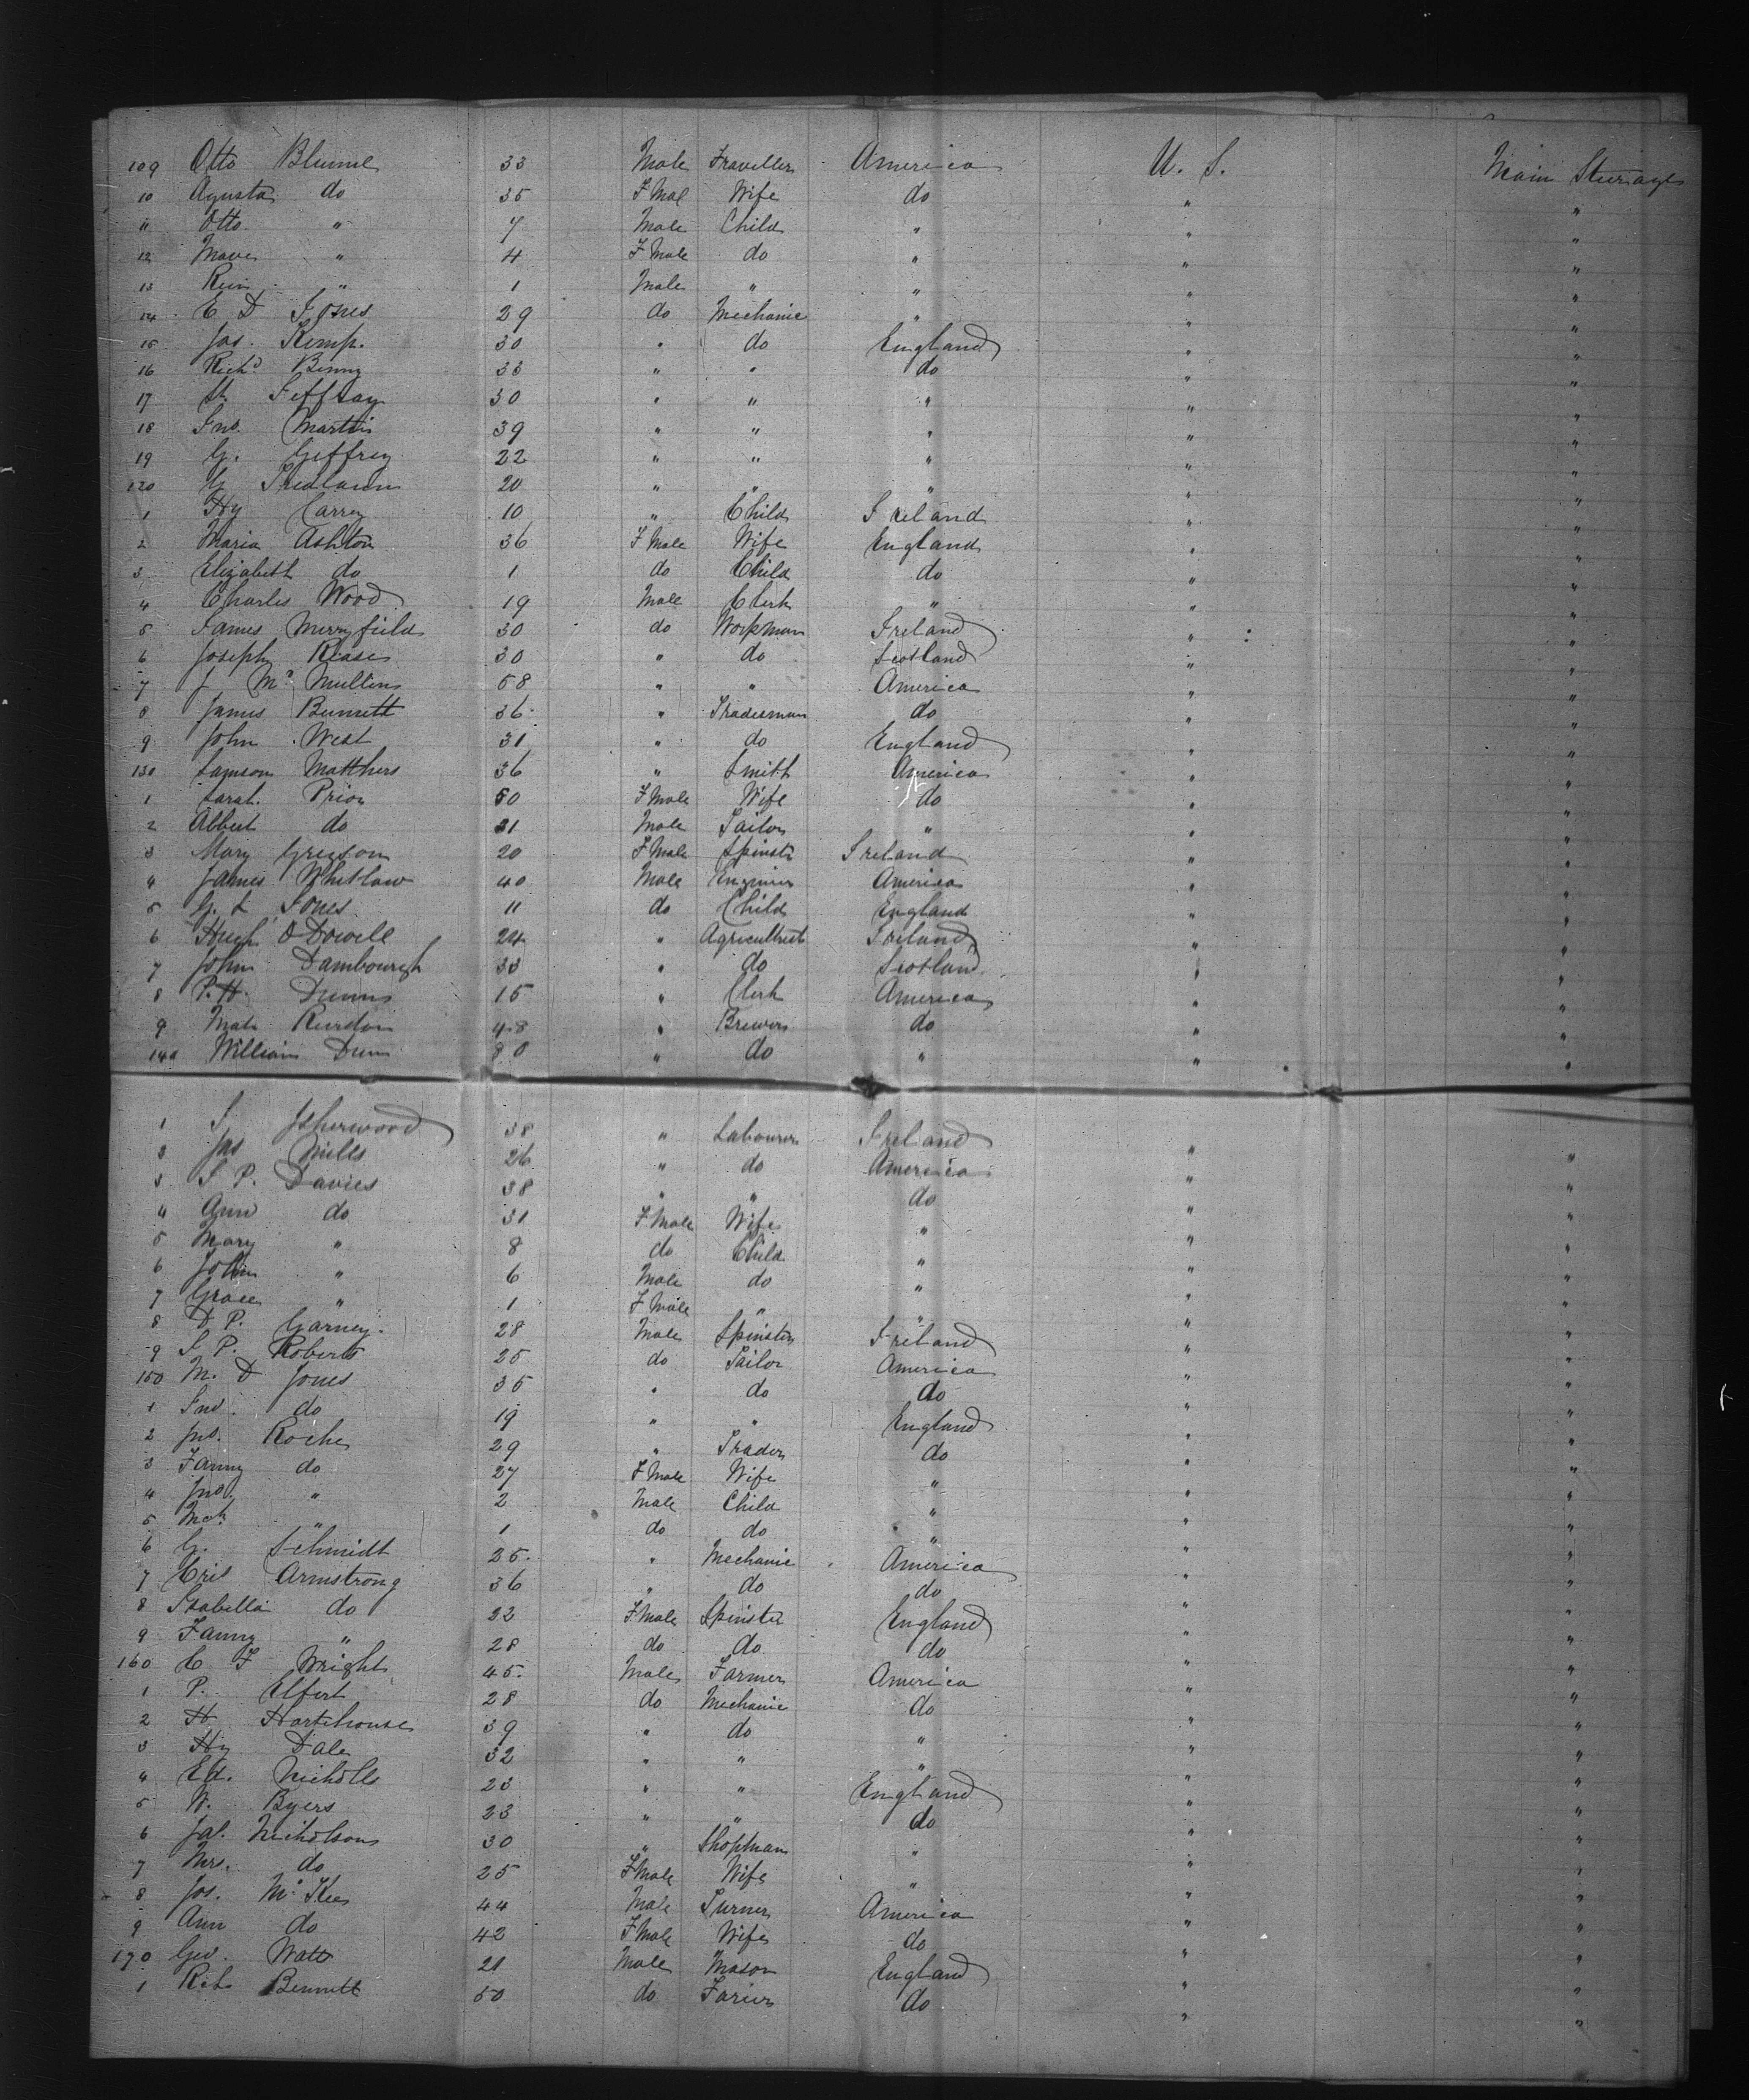 109 Otto Blume 33 Male Traveller America U. S. Main Steerage
10 Agusta do 35 F Mal Wife do " "
11 Otto " 7 Male Child " " "
12 " 4 F Male do " " "
13 Rein " 1 Male " " " "
14 E D Jones 29 do Mechanic " " "
15 Jas. Kemp. 30 " do England " "
16 Richd Binny 33 " " do " "
17 St Jeffray 30 " " " " "
18 Jno. Martin 39 " " " " "
19 G. Geffrey 22 " " " " "
120 20 " " " " "
1 Hy Carrey 10 " Child Ireland " "
2 Maria Ashton 36 F Male Wife England " "
3 Elizabeth do 1 do Child do " "
4 Charles Wood 19 Male Clerk " " "
5 James Merryfield 30 do Workman Ireland " "
6 Joseph Rease 30 " do Scotland " "
7 J Mc Mullins 58 " " America " "
8 James Bennett 36 " Tradesman do " "
9 John West 31 " do England " "
130 Samson Matthers 36 " Smith America " "
1 Sarah. Prior 50 F Male Wife do " "
2 Albert do 31 Male Tailor " " "
3 Mary Gregson 20 F Male Spinstr Ireland " "
4 James Whitlaw 40 Male Enginier America " "
5 G. L Jones 11 do Child England " "
6 Hugh O'Dowell 24 " Agricultrist Ireland " "
7 John Dambourgh 33 " do Scotland " "
8 P. H. Dunns 15 " Clerk America " "
9 Mat Reirdon 48 " Brewer do " "
140 William Dunn 30 " do " " "
1 J Isherwood 38 " Labourer Ireland " "
2 Jas Mills 26 " do America " "
3 J P. Davies 38 " " do " "
4 Ann do 31 F Male Wife " " "
5 Mary " 8 do Child " " "
6 John " 6 Male do " " "
7 Grace " 1 F Male " " " "
8 D P. Garney. 28 Male Spinster Ireland " "
9 J P. Roberts 25 do Tailor America " "
150 M. D Jones 35 " do do " "
1 Jno. do 19 " " England " "
2 Jno. Roche 29 " Trader do " "
3 Fanny do 27 F Male Wife " " "
4 Jno. " 2 Male Child " " "
5 Mat " 1 do do " " "
6 G. Schmidt 25. " Mechanic America " "
7 Cris Armstrong 36 " do do " "
8 Isabella do 22 F Male Spinster England " "
9 Fanny " 28 do do do " "
160 C F Wright 45. Male Farmer America " "
1 P. Elfert 28 do Mechanic do " "
2 H Hartshouse 39 " do " " "
3 Hy Dale 32 " " " " "
4 Ed. Nicholls 23 " " England " "
5 W. Byers 23 " " do " "
6 Jas. Nicholson 30 " Shopman " " "
7 Mrs. do 25 F Male Wife " " "
8 Jos. Mc Kee 44 Male Turner America " "
9 Ann do 42 F Male Wife do " "
170 Geo. Watt 21 Male Mason England " "
1 Rob Bennett 50 do Farier do " "